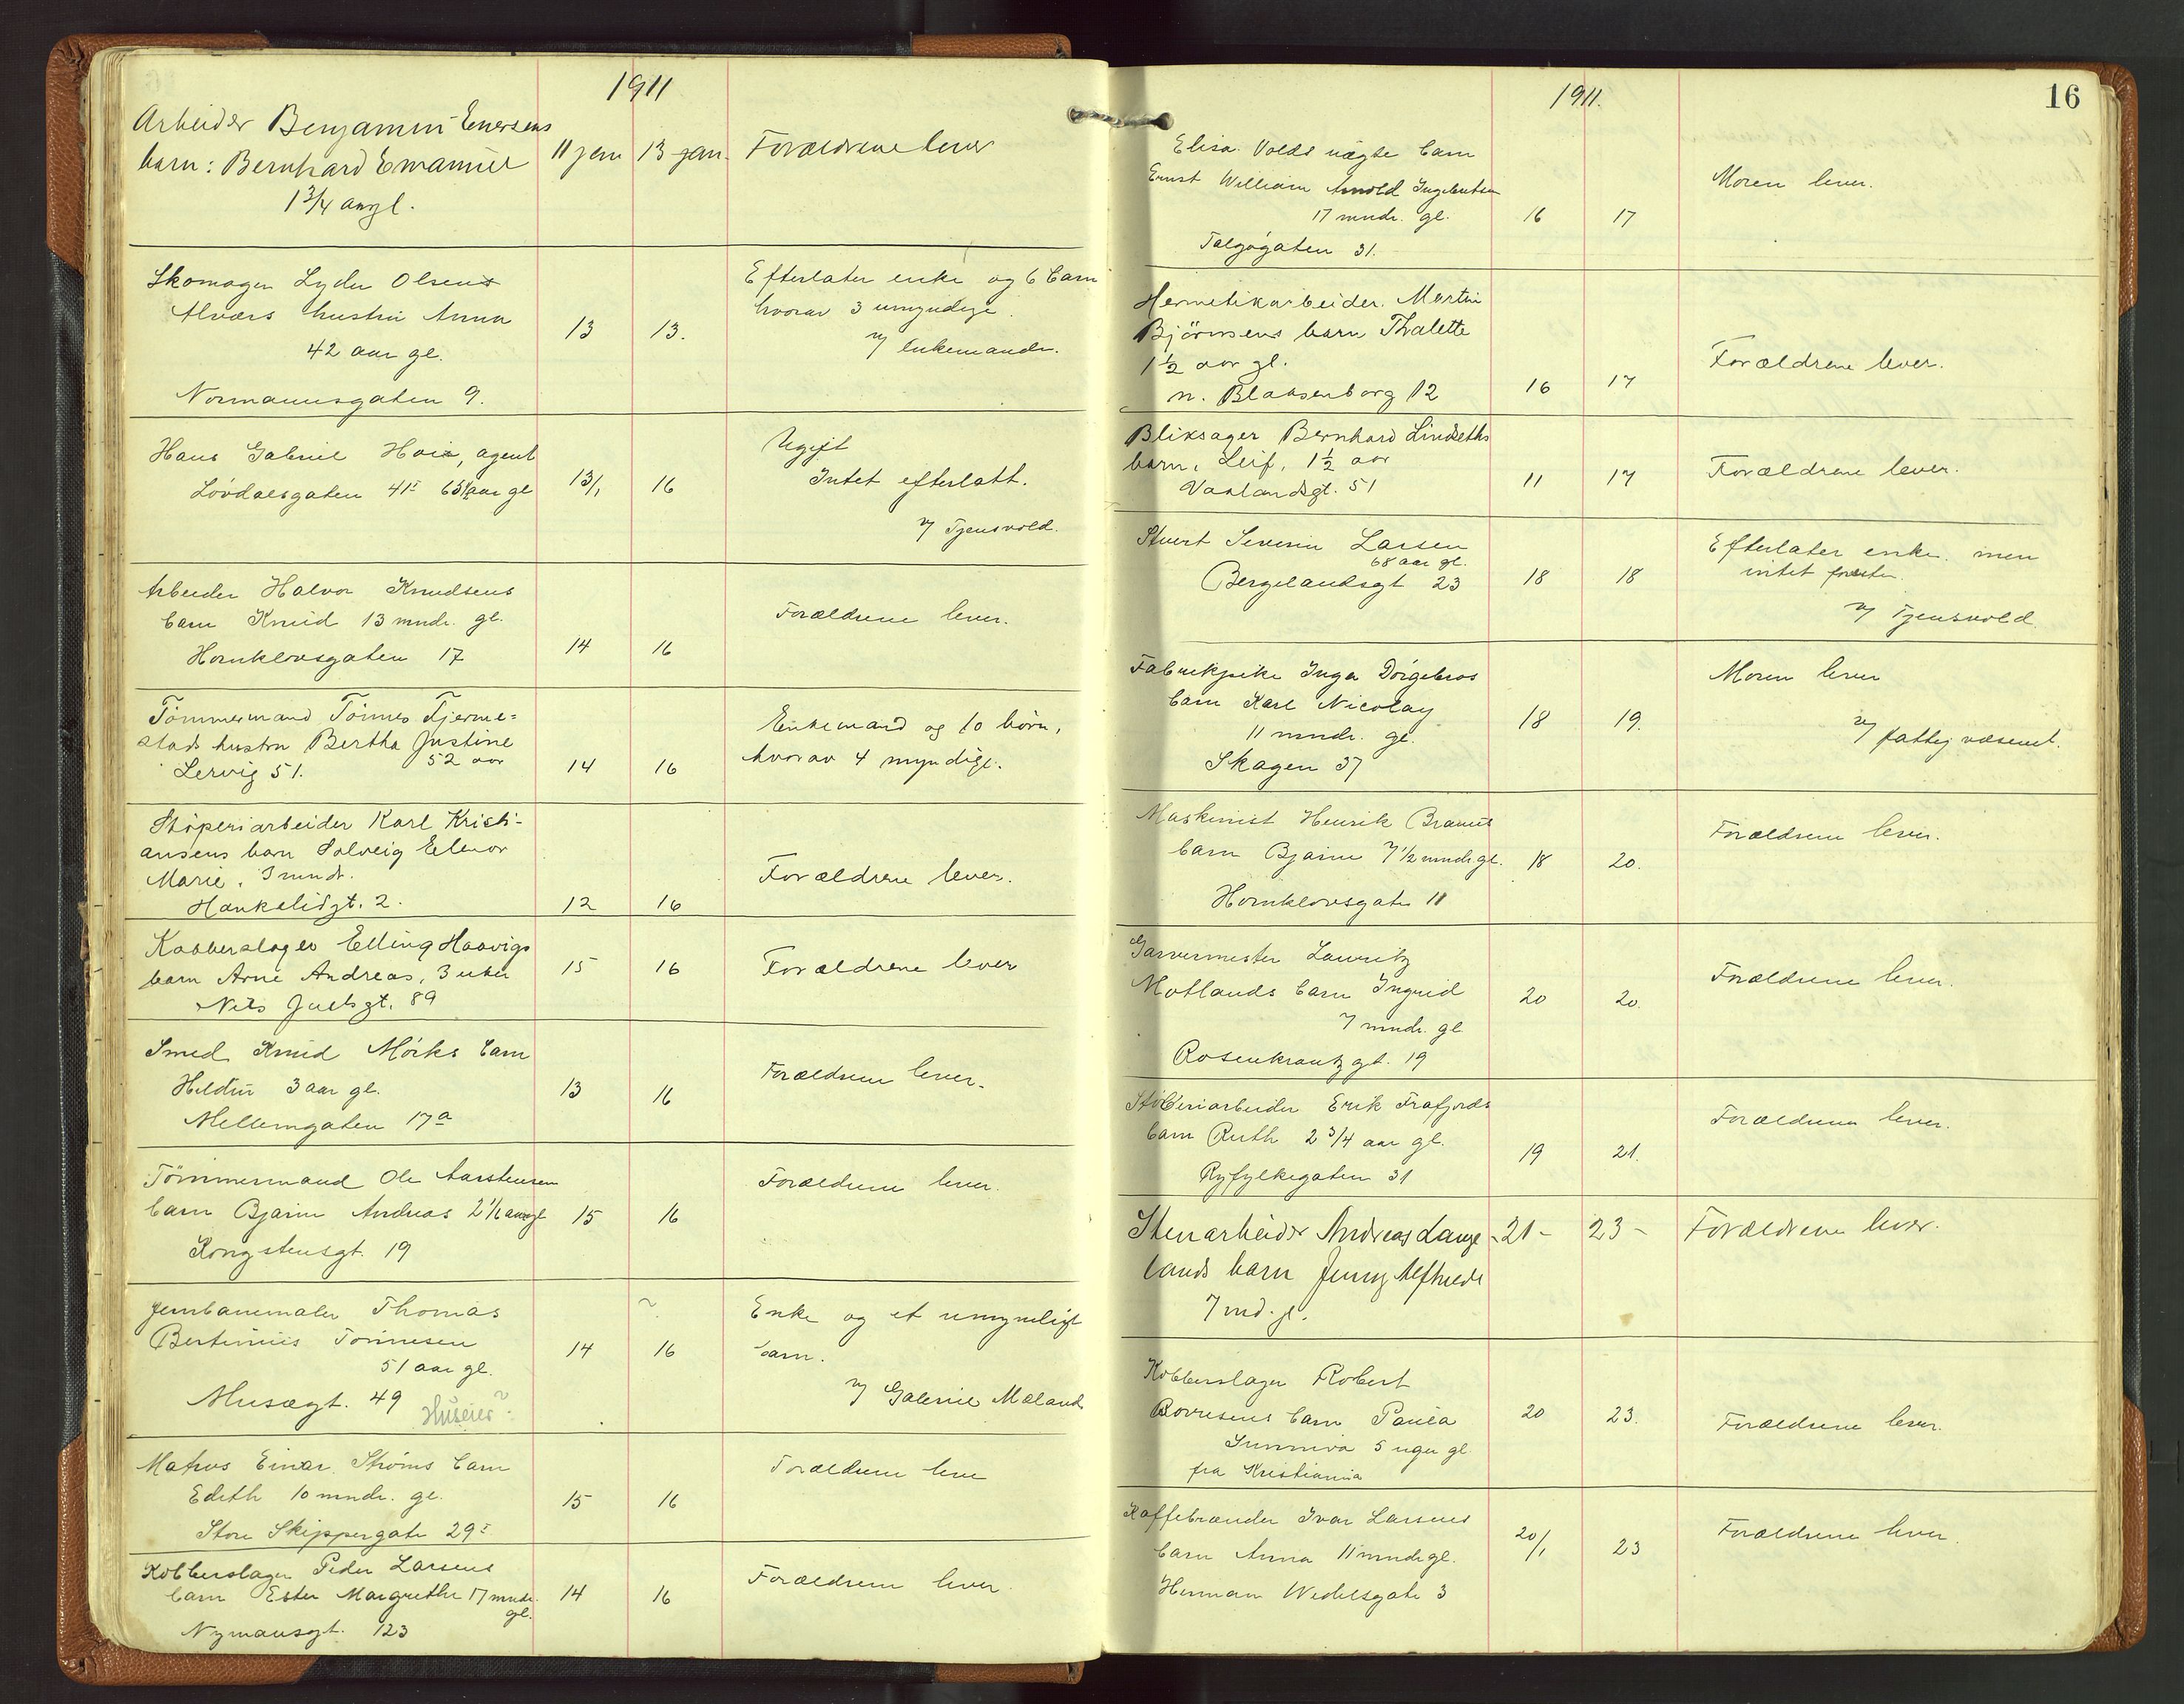 1911
Arbeider Benjamin Enersens
barn: Bernhard Emanuel 11 jan 13 jan. Forældrene lever
1 3/4 aar gl.
Skomager Lyder Olsens
Alværs hustru Anna 13 13.
42 aar gl.
Normannsgaten 9.
Efterlater enke og 6 barn
hvorav 3 umyndige.
v/ enkemanden.
Hans Gabriel Hoie, agent
Lövdalsgaten 41 I aar gl 13/1 16
Ugift
Intet efterlatt.
v/ Tjensvold.
Arbeider Halvor Knudsens
barn Knud 13 mndr. gl.
Hornklovsgaten 17 14 16
Forældrene lever.
Tömmermand Tönnes Tjerme=
stads hustru Bertha Justine
52 aar
Lervig 51. 14 16
Enkemand og 10 börn,
hvorav 4 myndige.
Stöperiarbeider Karl Kristi-
ansens barn Solveig Elenor
Marie, 3 mndr.
Haukeligt. 2. 12 16
Forældrene lever.
Kobberslager Elling Haavigs
barn Arne Andreas, 3 uker 15 16 Forældrene lever
Nils Juelsgt. 89
Smed Knud Mörks barn
3 aar gl. 13 16 Forældrene lever.
Mellemgaten 17 a
Tömmermand Ole Aarstensen
barn Bjarne Andreas 15 16
Kongstensgt. 19
Forældrene lever.
Jernbanemaler Thomas
Bertinius Tönnesen 14 16
51 aar gl.
Musægt. 49 Huseier ?
Enke og et umyndigt
barn.
v/ Gabriel Mæland
Matros Einar Ströms barn
Edith 10 mndr. gl. 15 16
Store Skippergate 29 I
Forældrene lever
Kobberslager Peder Larsens
barn Ester Margrethe 17 mndr. gl. 14 16
Nymansgt. 123
Forældrene lever.
1911.
16
Elisa Volds uægte barn
Ernst William Arnold Ingebretsen
17 mndr. gl. 16 17
Talgøgaten 31.
Moren lever.
Hermetikarbeider Martin
Björnsens barn Thalette
1 1/2 aar gl.
n. Blaasenborg 12 16 17
Forældrene lever.
Bliksager Bernhard Lindseths
barn, Leif, 1 1/2 aar
Vaalandsgt. 51 11 17
Forældrene lever.
Stuert Severin Larsen
68 aar gl.
Bergelandsgt 23 18 18
Efterlater enke men
intet forøvrig.
v/ Tjensvold
Fabrikpike Inga
barn Karl Nicolay
11 mndr. gl. 18 19.
Skagen 37
Moren lever
v/ fattigvæsenet.
Maskinist Henrik Brauns
barn Bjarne 7 1/2 mndr. gl. 18 20.
Hornklovsgate 11
Forældrene lever.
Garvermester Lauritz
Motlands barn Ingrid 20 20.
7 mndr. gl
Rosenkrantzgt. 19
Forældrene lever.
Stöberiarbeider Erik Frafjords
barn Ruth 2 3/4 aar gl. 19 21.
Ryfylkegaten 31
Forældrene lever.
Stenarbeider Andreas Lange
lands barn Jenny Alfhilde
7 md. gl. 21- 23-
Forældrene lever.
Kobberslager Robert
barn Paula 20 23.
Sunniva 5 uger gl.
fra Kristiania
Forældrene lever.
Kaffebrænder Ivar Larsens
barn Anna 11 mndr gl. 20/1 23
Herman Wedelsgate 3
Forældrene lever.